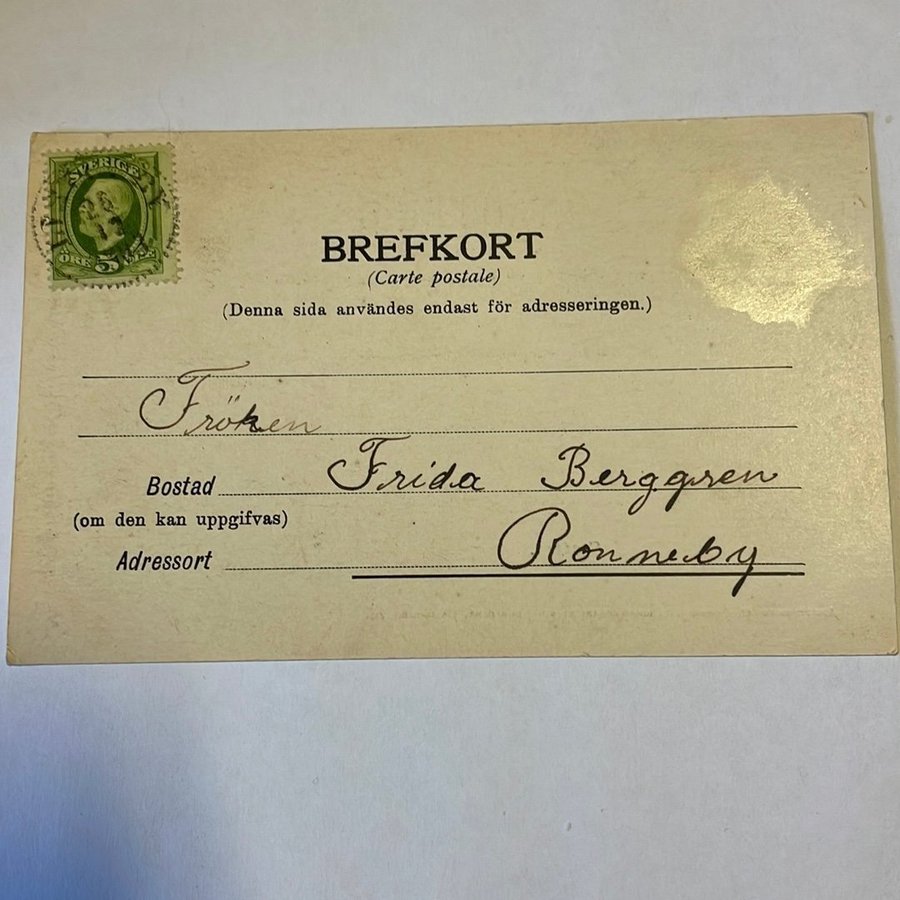 SVERIGE
ÖRE 5 ÖRE
BREFKORT
(Carte postale)
(Denna sida användes endast för adresseringen.)
Fröken
Bostad Frida Berggren
(om den kan uppgifvas)
Adressort Ronneby